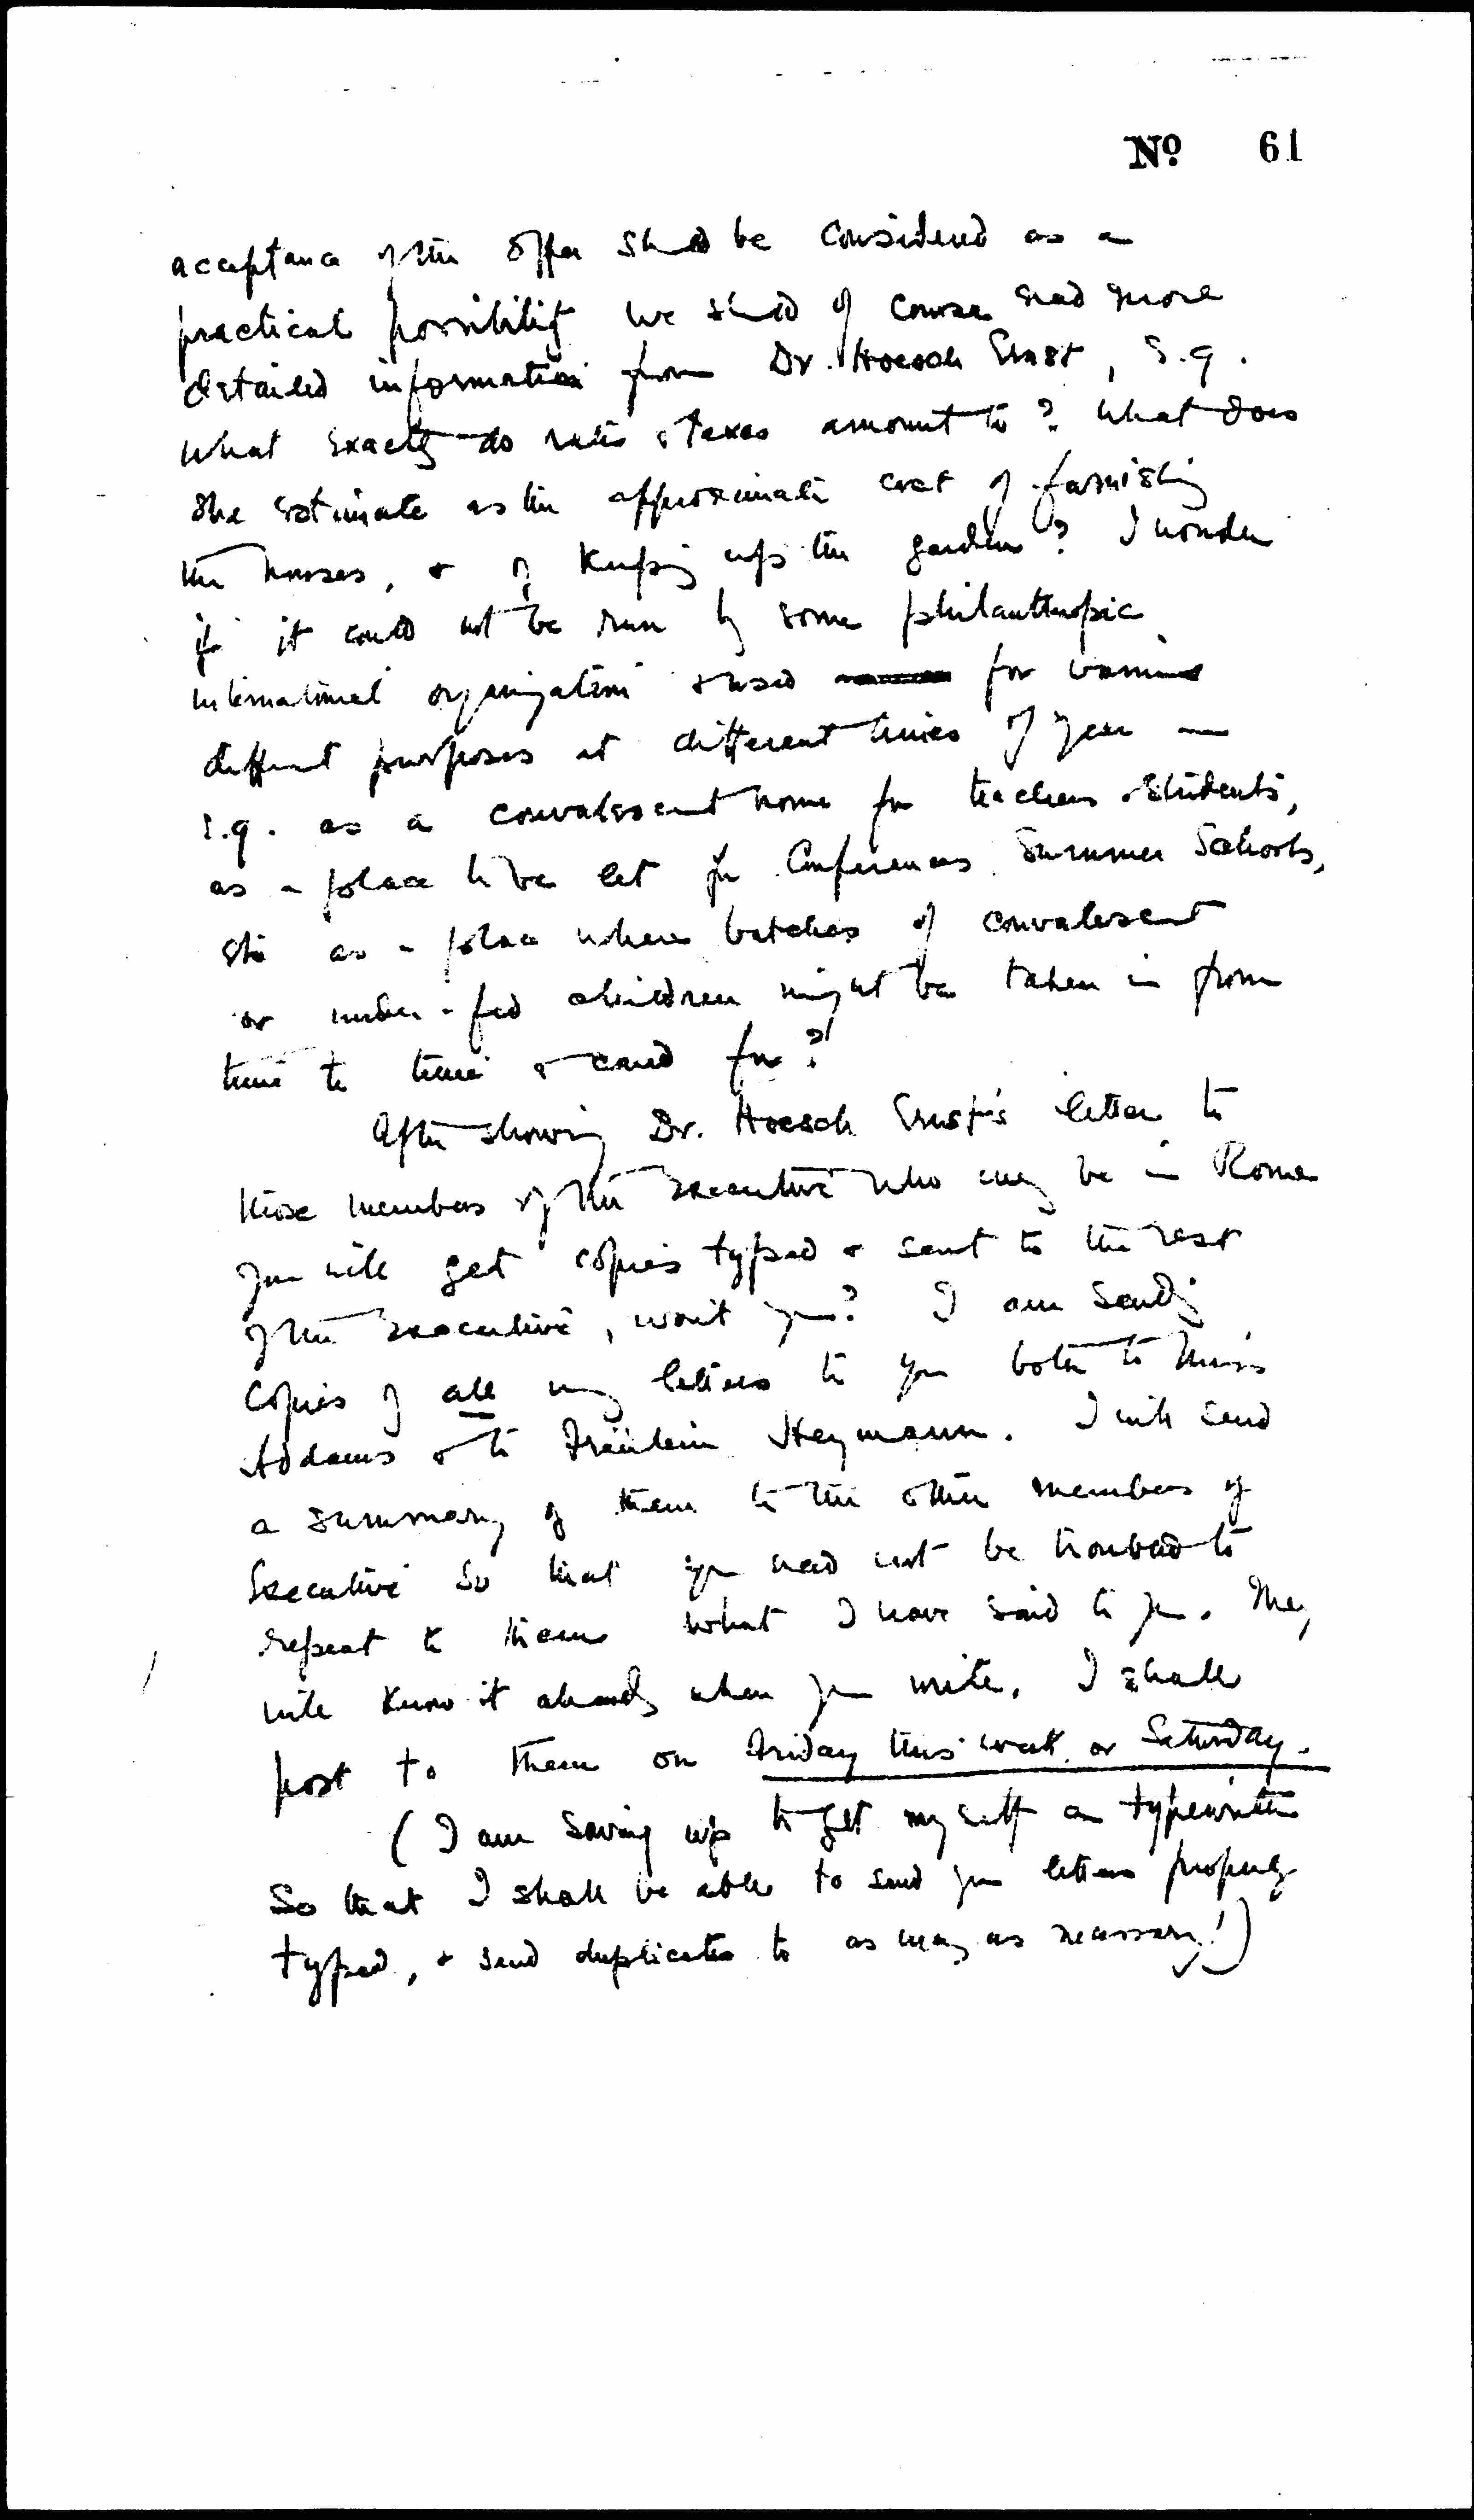 Nº 61
acceptance of the offer shd be considered as a
practical possibility we shd of course need more
detailed information from Dr. Hoesch Ernst, e.g.
what exactly do rates & taxes amount to? What does
she estimate as the approximate cost of furnishing
the houses, & of keeping up the gardens? I wonder
if it could not be run by some philanthropic
international organization & used for
different purposes at different times of year —
e.g. as a convalescent home for teachers & students,
as a place to be let for Conferences, Summer Schools,
etc as a place where batches of convalescent
or under-fed children might be taken in from
time to time & cared for?
After showing Dr. Hoesch Ernst's letter to
those members of the Executive who may be in Rome
you will get copies typed & sent to the rest
of the Executive, won't you? I am sending
copies of all my letters to you both to Miss
Addams & to Fräulein Heymann. I will send
a summary of them to the other members of
Executive so that you need not be troubled to
repeat to them what I have said to you. They
will know it already when you write. I shall
post to them on Friday this week or Saturday.
(I am saving up to get myself a typewriter
so that I shall be able to send you letters properly
typed, & send duplicates to as many as necessary!)